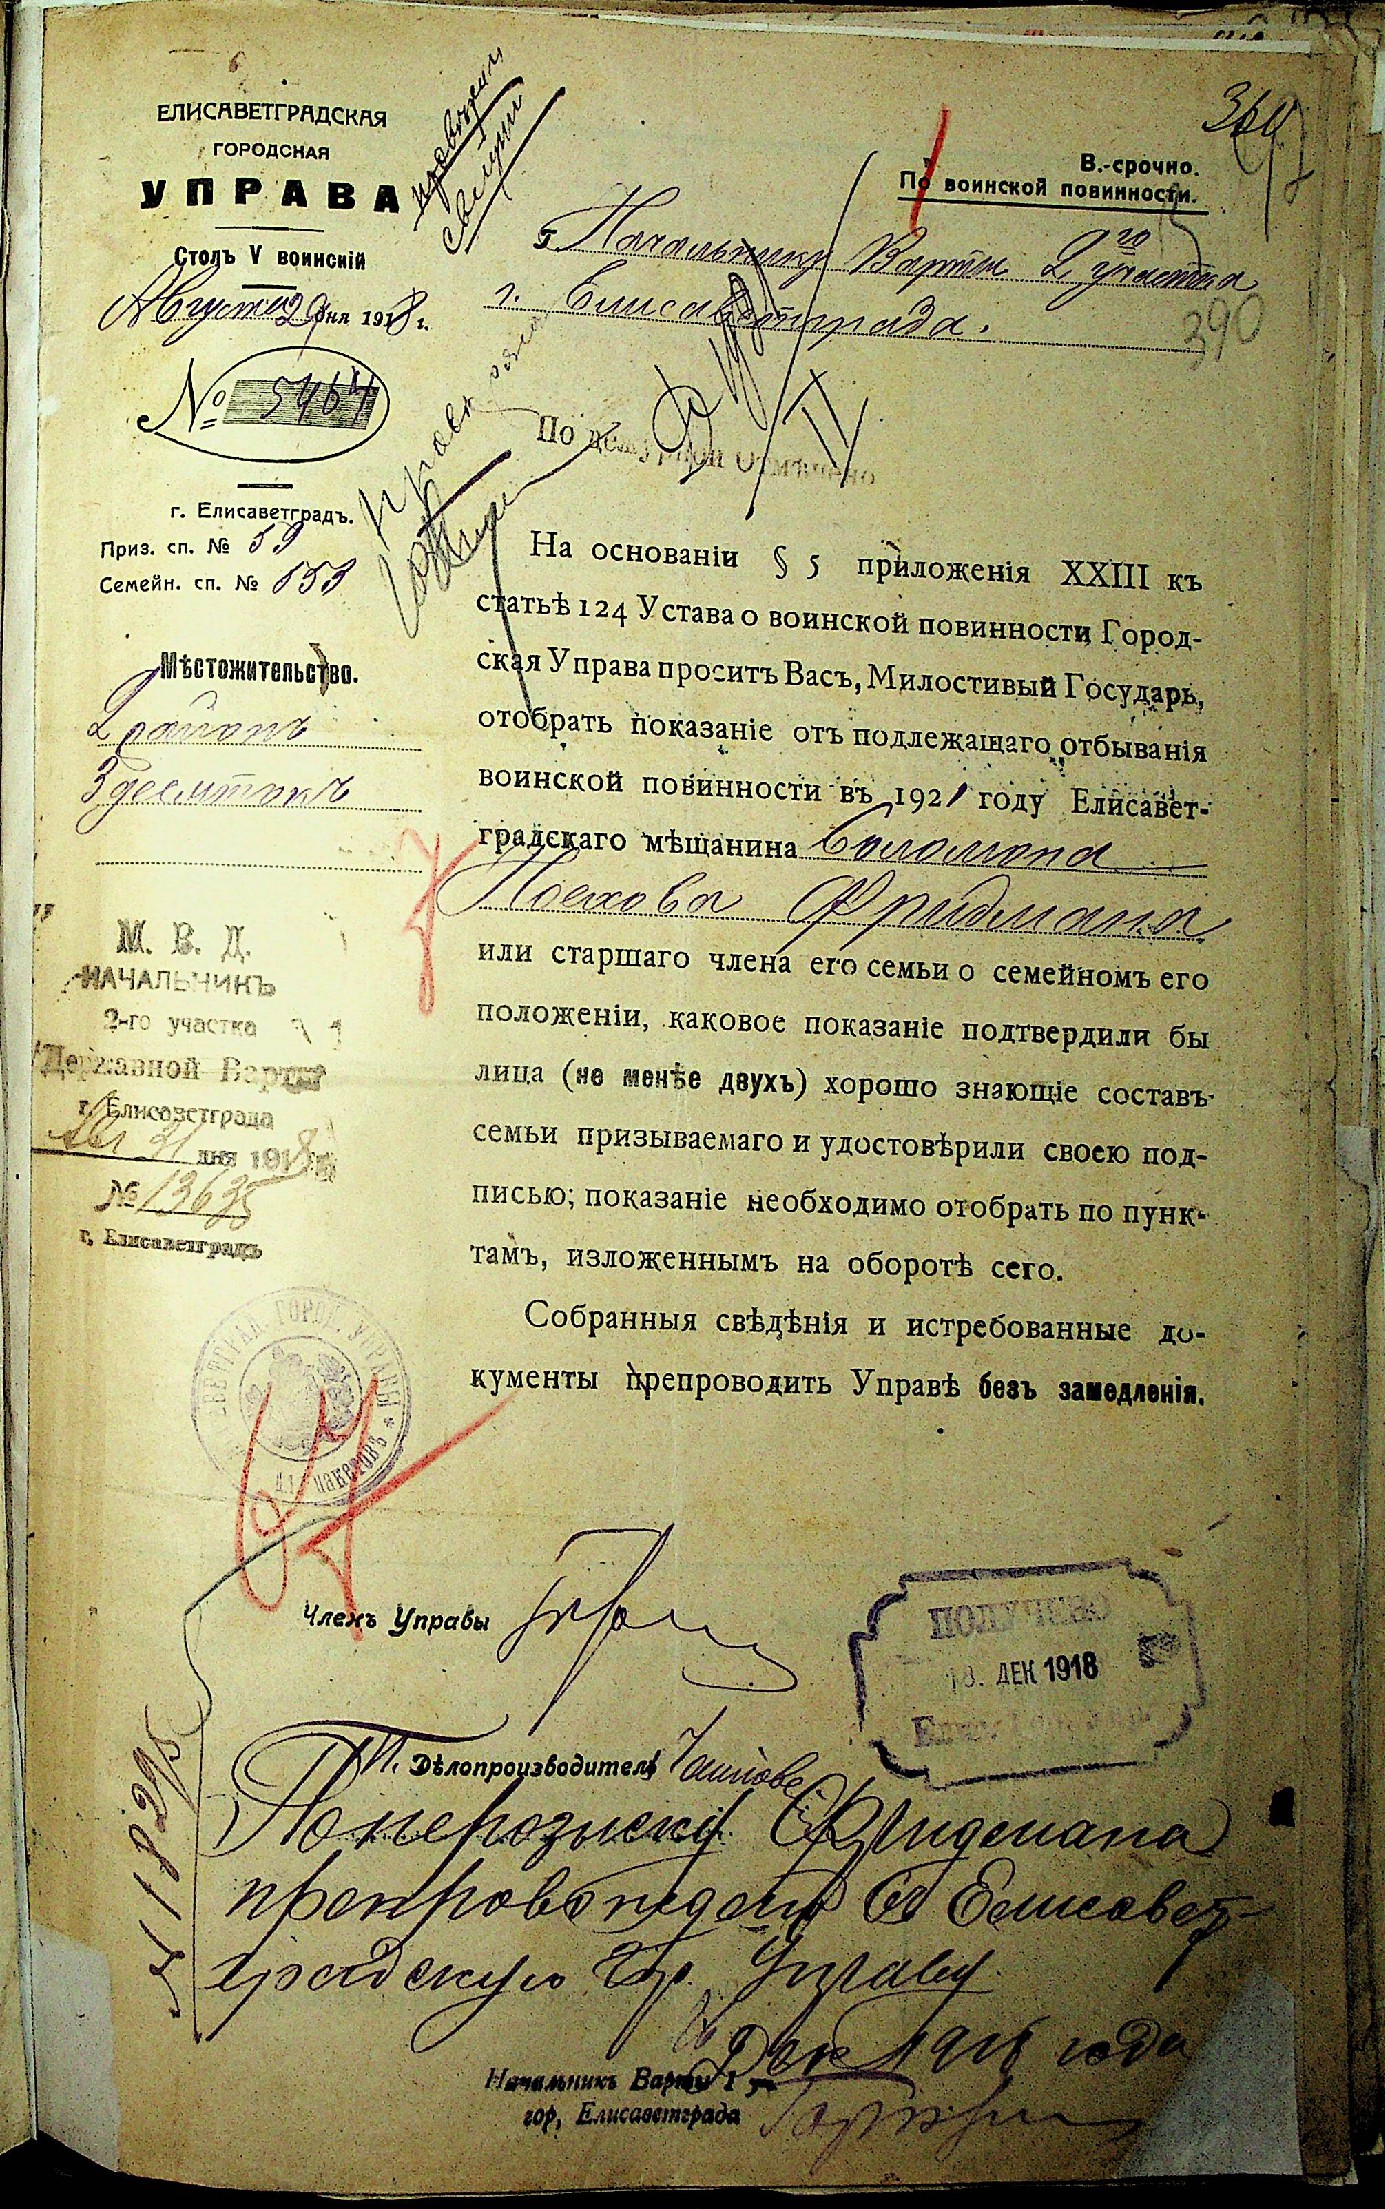 ЕЛИСАВЕТГРАДСКАЯ
ГОРОДСКАЯ
УПРАВА
Столъ V воинскій
Августа 29 дня 1918 г.
№ 5464
г. Елисаветградъ.
Приз. сп. № 59
Семейн. сп. № 153
Мѣстожительство.
2 районъ
3 десятокъ
В.-срочно.
По воинской повинности.
390
Г. Начальнику Варты 2го участка
г. Елисаветграда.
На основаніи § 5 приложенія XXIII къ
статьѣ 124 Устава о воинской повинности Город-
ская Управа проситъ Васъ, Милостивый Государь,
отобрать показаніе отъ подлежащаго отбыванія
воинской повинности въ 1921 году Елисавет-
градскаго мѣщанина Соломона
Посахова Фридмана
или старшаго члена его семьи о семейномъ его
положеніи, каковое показаніе подтвердили бы
лица (не менѣе двухъ) хорошо знающіе составъ
семьи призываемаго и удостовѣрили своею под-
писью; показаніе необходимо отобрать по пунк-
тамъ, изложеннымъ на оборотѣ сего.
Собранныя свѣдѣнія и истребованные до-
кументы препроводить Управѣ безъ замедленія.
М. В. Д.
НАЧАЛЬНИКЪ
2-го участка
Державной Варты
г. Елисаветграда
Авг 31 дня 1918
№ 13635
г. Елисаветградъ
Членъ Управы
ПОЛУЧЕНО
18. ДЕК 1918
И. Дѣлопроизводителя
По нерозыску Фридмана
препровождено въ Елисавет-
градскую Гор. Управу
Дек 1918 года
Начальникъ Варты 1
гор. Елисаветграда